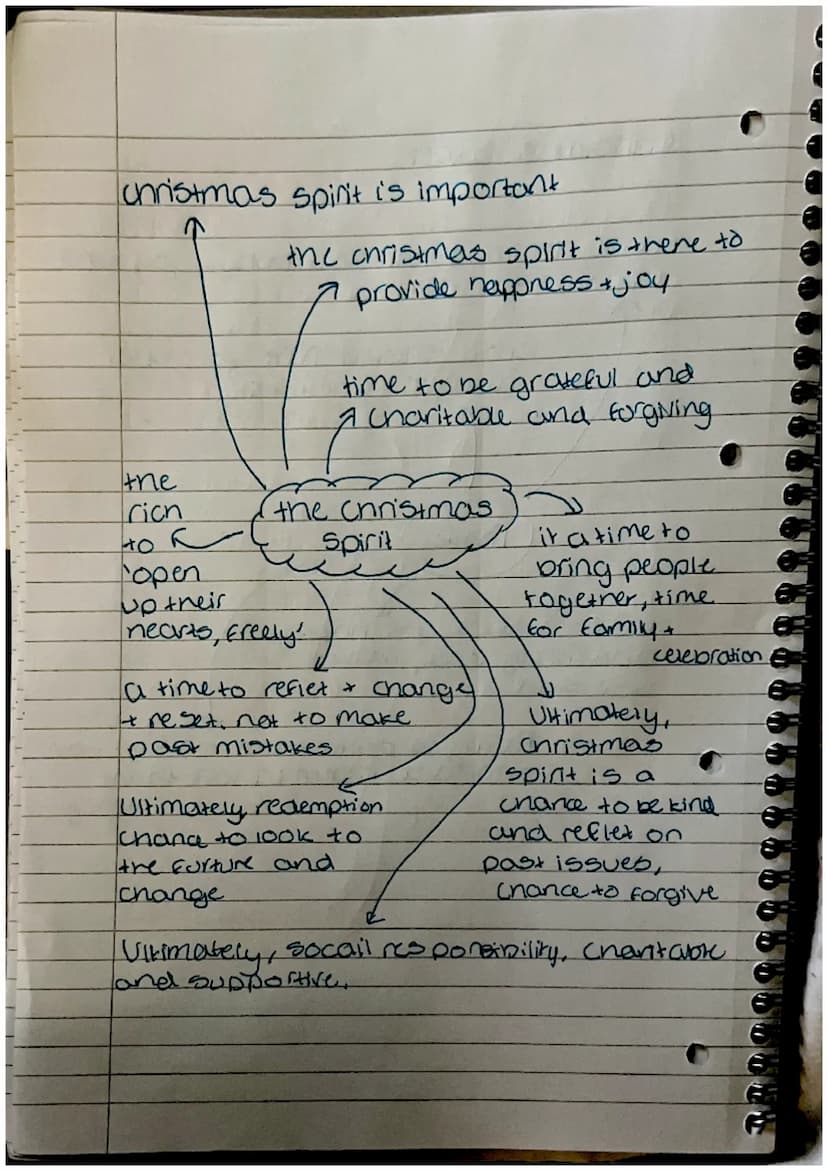 christmas spirit is important
the christmas spirit is there to
provide happness + joy
time to be grateful and
charitable and forgiving
the christmas
spirit
the
rich
to
'open
up their
hearts, freely'
it a time to
bring people
together, time
for family +
celebration
a time to reflet + change
+ reset, not to make
past mistakes
Ultimately,
christmas
spirit is a
chance to be kind
and reflet on
past issues,
chance to forgive
Ultimately redemption
chance to look to
the furture and
change
Ultimately, socail responsibility, charitable
and supportive.